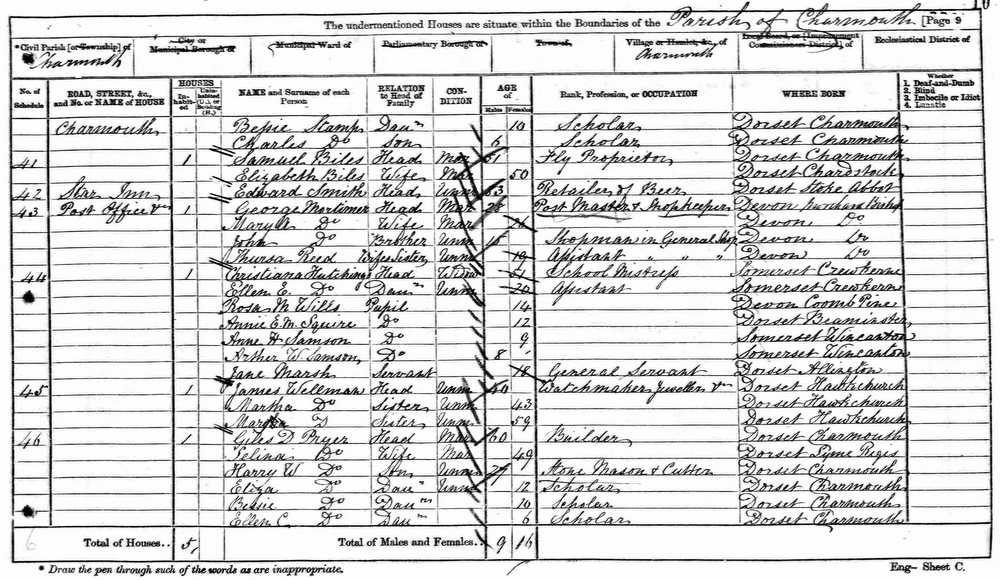 The undermentioned Houses are situate within the Boundaries of the Parish of Charmouth [Page 9
* Civil Parish [or Township] of Charmouth
City or Municipal Borough of
Municipal Ward of
Parliamentary Borough of
Town of
Village or Hamlet, &c., of Charmouth
Local Board, or [Improvement Commissioners District] of
Ecclesiastical District of
No. of Schedule
ROAD, STREET, &c., and No. or NAME of HOUSE
HOUSES
Inhabited
Uninhabited (U.), or Building (B.)
NAME and Surname of each Person
RELATION to Head of Family
CONDITION
AGE of
Males
Females
Rank, Profession, or OCCUPATION
WHERE BORN
Whether
1. Deaf-and-Dumb
2. Blind
3. Imbecile or Idiot
4. Lunatic
Charmouth Bessie Stamp Daur 10 Scholar Dorset Charmouth
Charles Do Son 6 Scholar Dorset Charmouth
41 1 Samuel Biles Head Mar 51 Fly Proprietor Dorset Charmouth
Elizabeth Biles Wife Mar 50 Dorset Chardstock
42 Star Inn Edward Smith Head Unm 63 Retailer of Beer Dorset Stoke Abbot
43 Post Office 1 George Mortimer Head Mar 28 Post Master & Shopkeeper Devon
Mary A Do Wife Mar Devon Do
John Do Brother Unm Shopman in General Shop Devon Do
Thursa Reed Wifes Sister Unm 19 Assistant " " " Devon Do
44 1 Christiana Hutchings Head Widow 51 School Mistress Somerset Crewkerne
Ellen E. Do Daur Unm 24 Assistant Somerset Crewkerne
Rosa M Wills Pupil 14 Devon Coomb Pine
Annie E. M. Squire Do 12 Dorset Beaminster
Anne H Samson Do 9 Somerset Wincanton
Arther W Samson Do 8 Somerset Wincanton
Jane Marsh Servant 18 General Servant Dorset Allington
45 1 James Wellman Head Unm 40 Watchmaker Jeweller Dorset Hawkchurch
Martha Do Sister Unm 43 Dorset Hawkchurch
D Sister Unm 59 Dorset Hawkchurch
46 1 Giles D Pryer Head Mar 60 Builder Dorset Charmouth
Selina Do Wife Mar 49 Dorset Lyme Regis
Harry W Do Son Unm 27 Stone Mason & Cutter Dorset Charmouth
Eliza Do Daur Unm 12 Scholar Dorset Charmouth
Bessie Do Daur 10 Scholar Dorset Charmouth
Ellen C Do Daur 6 Scholar Dorset Charmouth
6 Total of Houses... 5 Total of Males and Females... 9 16
* Draw the pen through such of the words as are inappropriate.
Eng- Sheet C.